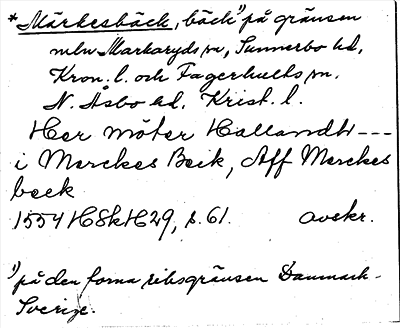 *Märkesbäck, bäck¹⁾ på gränsen
mln Markaryds sn, Sunnerbo hd,
Kron. l. och Fagerhults sn.
N. Åsbo hd. Krist. l.
Her möter Hallandh ---
i Merckes Beck, Aff Merckes
beck
1554 HSkH29, s. 61. avskr.
¹⁾ på den forna riksgränsen Danmark-
Sverige.